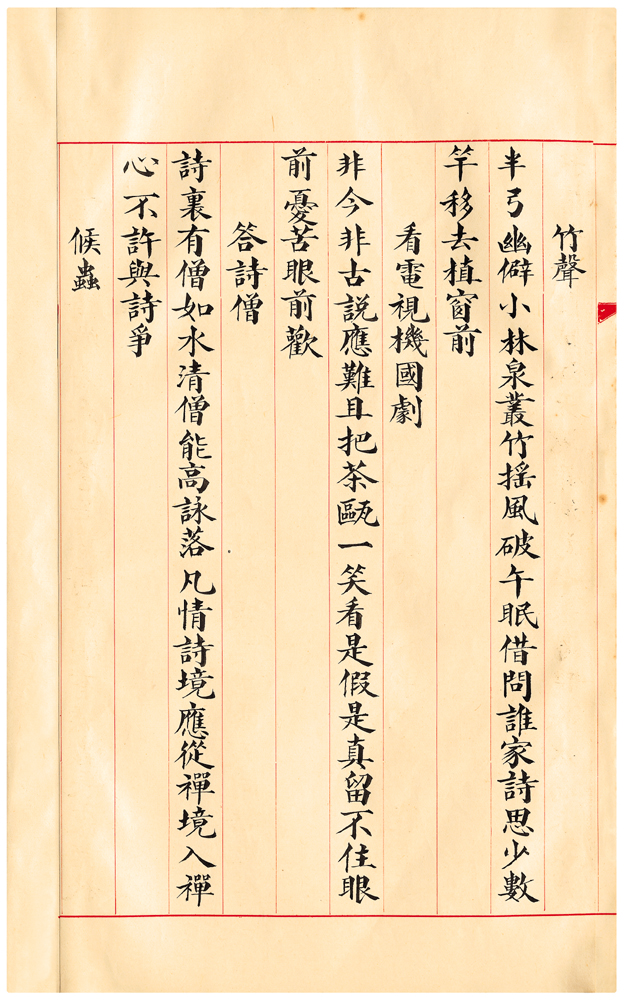 竹聲
半弓幽僻小林泉叢竹搖風破午眠借問誰家詩思少數
竿移去植窗前
看電視機國劇
非今非古説應難且把茶甌一笑看是假是真留不住眼
前憂苦眼前歡
答詩僧
詩裏有僧如水清僧能高詠落凡情詩境應從禪境入禪
心不許與詩爭
候蟲